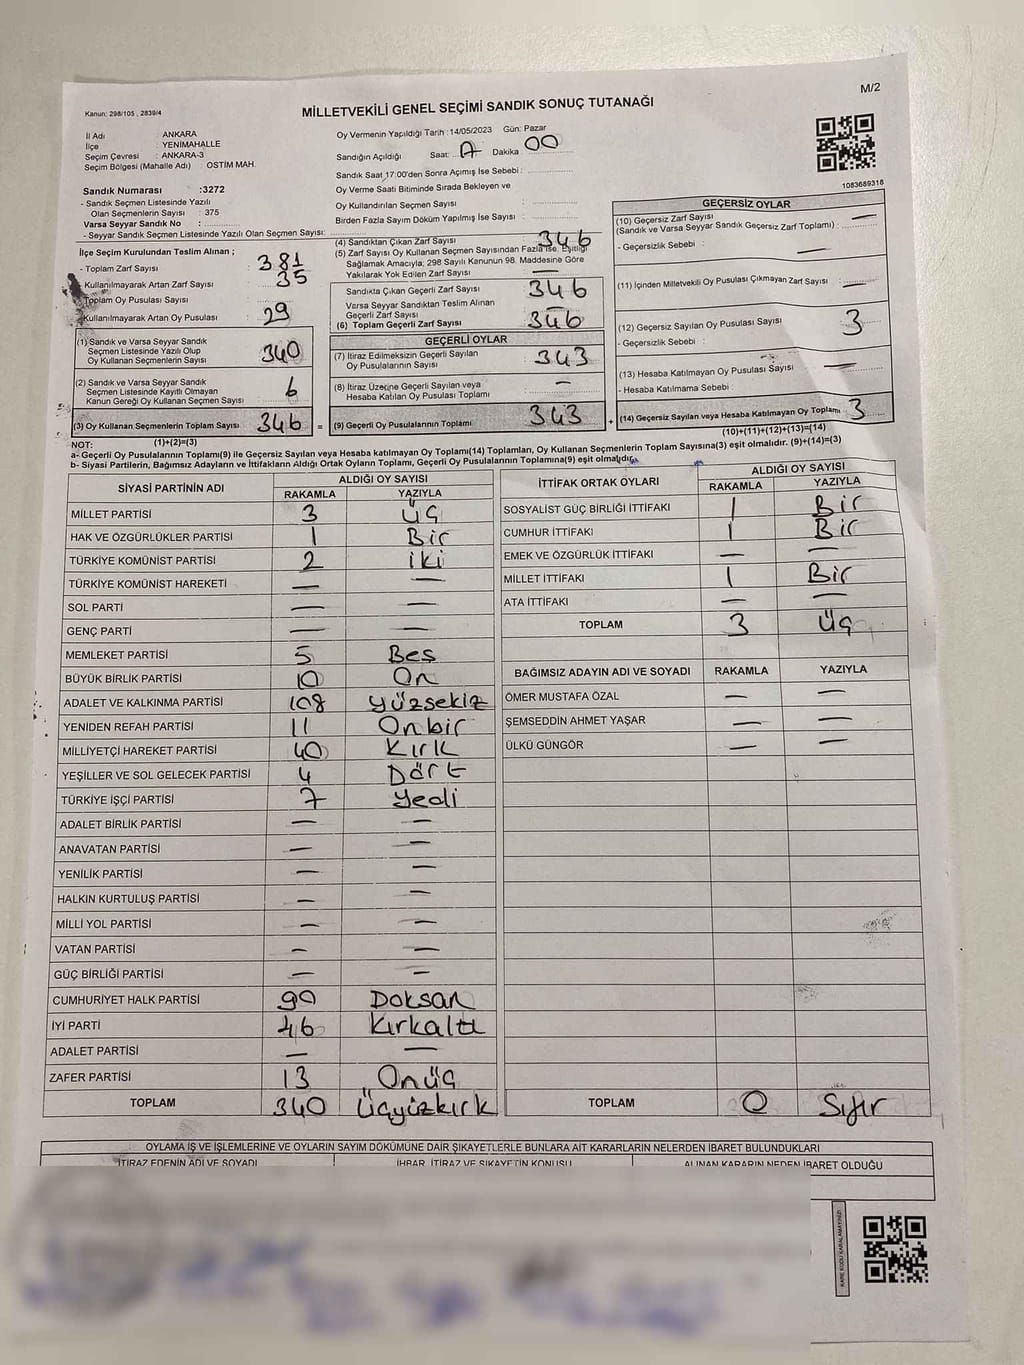 M/2
Kanun: 298/105 , 2839/4
MİLLETVEKİLİ GENEL SEÇİMİ SANDIK SONUÇ TUTANAĞI
İl Adı : ANKARA
İlçe : YENİMAHALLE
Seçim Çevresi : ANKARA-3
Seçim Bölgesi (Mahalle Adı) : OSTİM MAH.
Sandık Numarası :3272
- Sandık Seçmen Listesinde Yazılı
Olan Seçmenlerin Sayısı : 375
Varsa Seyyar Sandık No :
- Seyyar Sandık Seçmen Listesinde Yazılı Olan Seçmen Sayısı:
Oy Vermenin Yapıldığı Tarih : 14/05/2023 Gün: Pazar
Sandığın Açıldığı Saat: Dakika 00
Sandık Saat 17:00'den Sonra Açımış İse Sebebi :
Oy Verme Saati Bitiminde Sırada Bekleyen ve
Oy Kullandırılan Seçmen Sayısı :
Birden Fazla Sayım Döküm Yapılmış İse Sayısı :
1083689318
İlçe Seçim Kurulundan Teslim Alınan ;
- Toplam Zarf Sayısı : 381
Kullanılmayarak Artan Zarf Sayısı : 35
Toplam Oy Pusulası Sayısı :
Kullanılmayarak Artan Oy Pusulası : 29
(1) Sandık ve Varsa Seyyar Sandık
Seçmen Listesinde Yazılı Olup
Oy Kullanan Seçmenlerin Sayısı : 340
(2) Sandık ve Varsa Seyyar Sandık
Seçmen Listesinde Kayıtlı Olmayan
Kanun Gereği Oy Kullanan Seçmen Sayısı : 6
(3) Oy Kullanan Seçmenlerin Toplam Sayısı : 346 =
(4) Sandıktan Çıkan Zarf Sayısı : 346
(5) Zarf Sayısı Oy Kullanan Seçmen Sayısından Fazla İse, Eşitliği
Sağlamak Amacıyla; 298 Sayılı Kanunun 98. Maddesine Göre
Yakılarak Yok Edilen Zarf Sayısı : —
Sandıkta Çıkan Geçerli Zarf Sayısı : 346
Varsa Seyyar Sandıktan Teslim Alınan
Geçerli Zarf Sayısı : —
(6) Toplam Geçerli Zarf Sayısı : 346
GEÇERLİ OYLAR
(7) İtiraz Edilmeksizin Geçerli Sayılan
Oy Pusulalarının Sayısı : 343
(8) İtiraz Üzerine Geçerli Sayılan veya
Hesaba Katılan Oy Pusulası Toplamı : —
(9) Geçerli Oy Pusulalarının Toplamı : 343 +
GEÇERSİZ OYLAR
(10) Geçersiz Zarf Sayısı
(Sandık ve Varsa Seyyar Sandık Geçersiz Zarf Toplamı) : —
- Geçersizlik Sebebi : —
(11) İçinden Milletvekili Oy Pusulası Çıkmayan Zarf Sayısı : —
(12) Geçersiz Sayılan Oy Pusulası Sayısı : 3
- Geçersizlik Sebebi :
(13) Hesaba Katılmayan Oy Pusulası Sayısı : —
- Hesaba Katılmama Sebebi :
(14) Geçersiz Sayılan veya Hesaba Katılmayan Oy Toplamı : 3
NOT: (1)+(2)=(3) (10)+(11)+(12)+(13)=(14)
a- Geçerli Oy Pusulalarının Toplamı(9) ile Geçersiz Sayılan veya Hesaba katılmayan Oy Toplamı(14) Toplamları, Oy Kullanan Seçmenlerin Toplam Sayısına(3) eşit olmalıdır. (9)+(14)=(3)
b- Siyasi Partilerin, Bağımsız Adayların ve İttifakların Aldığı Ortak Oyların Toplamı, Geçerli Oy Pusulalarının Toplamına(9) eşit olmalıdır.
SİYASİ PARTİNİN ADI ALDIĞI OY SAYISI
RAKAMLA YAZIYLA
MİLLET PARTİSİ 3 Üç
HAK VE ÖZGÜRLÜKLER PARTİSİ 1 Bir
TÜRKİYE KOMÜNİST PARTİSİ 2 iki
TÜRKİYE KOMÜNİST HAREKETİ — —
SOL PARTİ — —
GENÇ PARTİ — —
MEMLEKET PARTİSİ 5 Beş
BÜYÜK BİRLİK PARTİSİ 10 On
ADALET VE KALKINMA PARTİSİ 108 Yüzsekiz
YENİDEN REFAH PARTİSİ 11 Onbir
MİLLİYETÇİ HAREKET PARTİSİ 40 Kırk
YEŞİLLER VE SOL GELECEK PARTİSİ 4 Dört
TÜRKİYE İŞÇİ PARTİSİ 7 Yedi
ADALET BİRLİK PARTİSİ — —
ANAVATAN PARTİSİ — —
YENİLİK PARTİSİ — —
HALKIN KURTULUŞ PARTİSİ — —
MİLLİ YOL PARTİSİ — —
VATAN PARTİSİ — —
GÜÇ BİRLİĞİ PARTİSİ — —
CUMHURİYET HALK PARTİSİ 90 Doksan
İYİ PARTİ 46 Kırkaltı
ADALET PARTİSİ — —
ZAFER PARTİSİ 13 Onüç
TOPLAM 340 Üçyüzkırk
İTTİFAK ORTAK OYLARI ALDIĞI OY SAYISI
RAKAMLA YAZIYLA
SOSYALİST GÜÇ BİRLİĞİ İTTİFAKI 1 Bir
CUMHUR İTTİFAKI 1 Bir
EMEK VE ÖZGÜRLÜK İTTİFAKI — —
MİLLET İTTİFAKI 1 Bir
ATA İTTİFAKI — —
TOPLAM 3 Üç
BAĞIMSIZ ADAYIN ADI VE SOYADI RAKAMLA YAZIYLA
ÖMER MUSTAFA ÖZAL — —
ŞEMSEDDİN AHMET YAŞAR — —
ÜLKÜ GÜNGÖR — —
TOPLAM 0 Sıfır
OYLAMA İŞ VE İŞLEMLERİNE VE OYLARIN SAYIM DÖKÜMÜNE DAİR ŞİKAYETLERLE BUNLARA AİT KARARLARIN NELERDEN İBARET BULUNDUKLARI
İTİRAZ EDENİN ADI VE SOYADI İHBAR, İTİRAZ VE ŞİKAYETİN KONUSU ALINAN KARARIN NEDEN İBARET OLDUĞU
KARE KODU KARALAMAYINIZ!